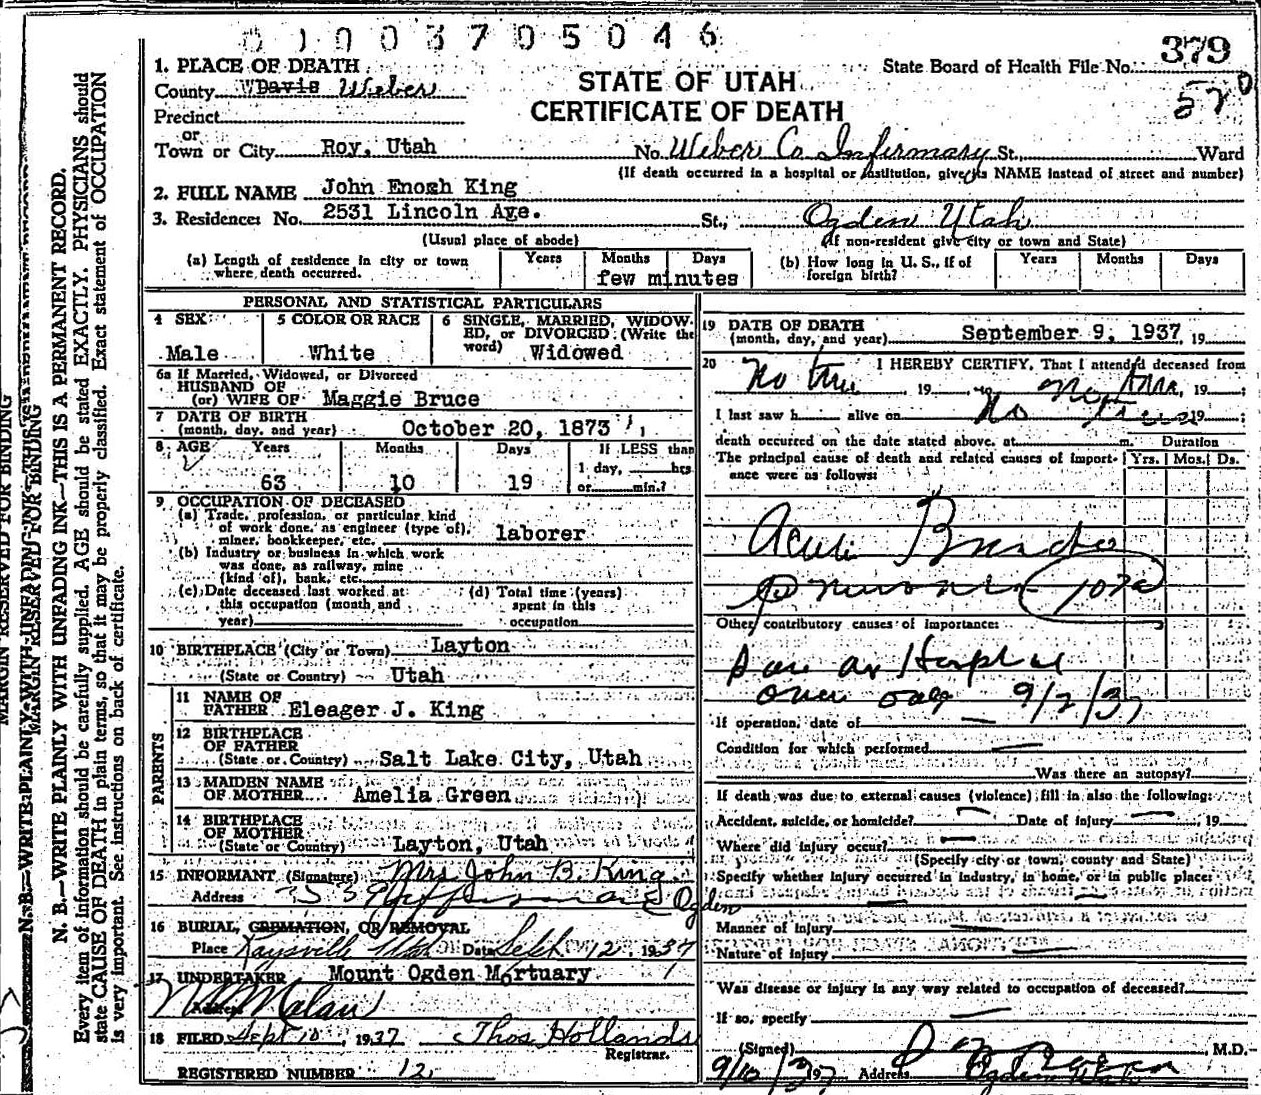 0 1 0 0 3 7 0 5 0 4 6
379
570
1. PLACE OF DEATH
County WDavis Weber
Precinct
or
Town or City Roy, Utah
STATE OF UTAH
CERTIFICATE OF DEATH
State Board of Health File No.
No. Weber Co Infirmary St., Ward
(If death occurred in a hospital or institution, give its NAME instead of street and number)
2. FULL NAME John Enosh King
3. Residence: No. 2531 Lincoln Age. St., Ogden Utah
(Usual place of abode)
(If non-resident give city or town and State)
(a) Length of residence in city or town where death occurred.
Years Months Days
few minutes
(b) How long in U. S., if of foreign birth?
Years Months Days
PERSONAL AND STATISTICAL PARTICULARS
4 SEX
Male
5 COLOR OR RACE
White
6 SINGLE, MARRIED, WIDOWED, or DIVORCED (Write the word)
Widowed
6a If Married, Widowed, or Divorced
HUSBAND OF
(or) WIFE OF Maggie Bruce
7 DATE OF BIRTH
(month, day, and year) October 20, 1873
8 AGE Years Months Days If LESS than
1 day, hrs
63 10 19 or min.?
9 OCCUPATION OF DECEASED
(a) Trade, profession, or particular kind
of work done, as engineer (type of),
miner, bookkeeper, etc. laborer
(b) Industry or business in which work
was done, as railway, mine
(kind of), bank, etc.
(c) Date deceased last worked at
this occupation (month and
year)
(d) Total time (years)
spent in this
occupation
10 BIRTHPLACE (City or Town) Layton
(State or Country) Utah
PARENTS
11 NAME OF
FATHER Eleager J. King
12 BIRTHPLACE
OF FATHER
(State or Country) Salt Lake City, Utah
13 MAIDEN NAME
OF MOTHER Amelia Green
14 BIRTHPLACE
OF MOTHER
(State or Country) Layton, Utah
15 INFORMANT (Signature) Mrs John B. King
Address Ogden
16 BURIAL, CREMATION, OR REMOVAL
Place Kaysville Utah Date Sept 12 1937
17 UNDERTAKER Mount Ogden Mortuary
Address
18 FILED Sept 10, 1937 Thos Hollands
Registrar.
REGISTERED NUMBER 12
19 DATE OF DEATH
(month, day, and year) September 9, 1937, 19
20 I HEREBY CERTIFY, That I attended deceased from
No time, 19 to No time, 19 ;
I last saw h alive on No time 19 ;
death occurred on the date stated above, at m. Duration
The principal cause of death and related causes of importance were as follows: Yrs. Mos. Ds.
Acute Broncho
Pneumonia (107a)
Other contributory causes of importance:
9/2/37
If operation, date of
Condition for which performed
Was there an autopsy?
If death was due to external causes (violence) fill in also the following:
Accident, suicide, or homicide? Date of injury , 19
Where did injury occur?
(Specify city or town, county and State)
Specify whether injury occurred in industry, in home, or in public place:
Manner of injury
Nature of injury
Was disease or injury in any way related to occupation of deceased?
If so, specify
(Signed) M.D.
9/10/37 19 Address Ogden Utah
MARGIN RESERVED FOR BINDING
N. B.—WRITE PLAINLY WITH UNFADING INK—THIS IS A PERMANENT RECORD.
Every item of information should be carefully supplied. AGE should be stated EXACTLY. PHYSICIANS should
state CAUSE OF DEATH in plain terms, so that it may be properly classified. Exact statement of OCCUPATION
is very important. See instructions on back of certificate.